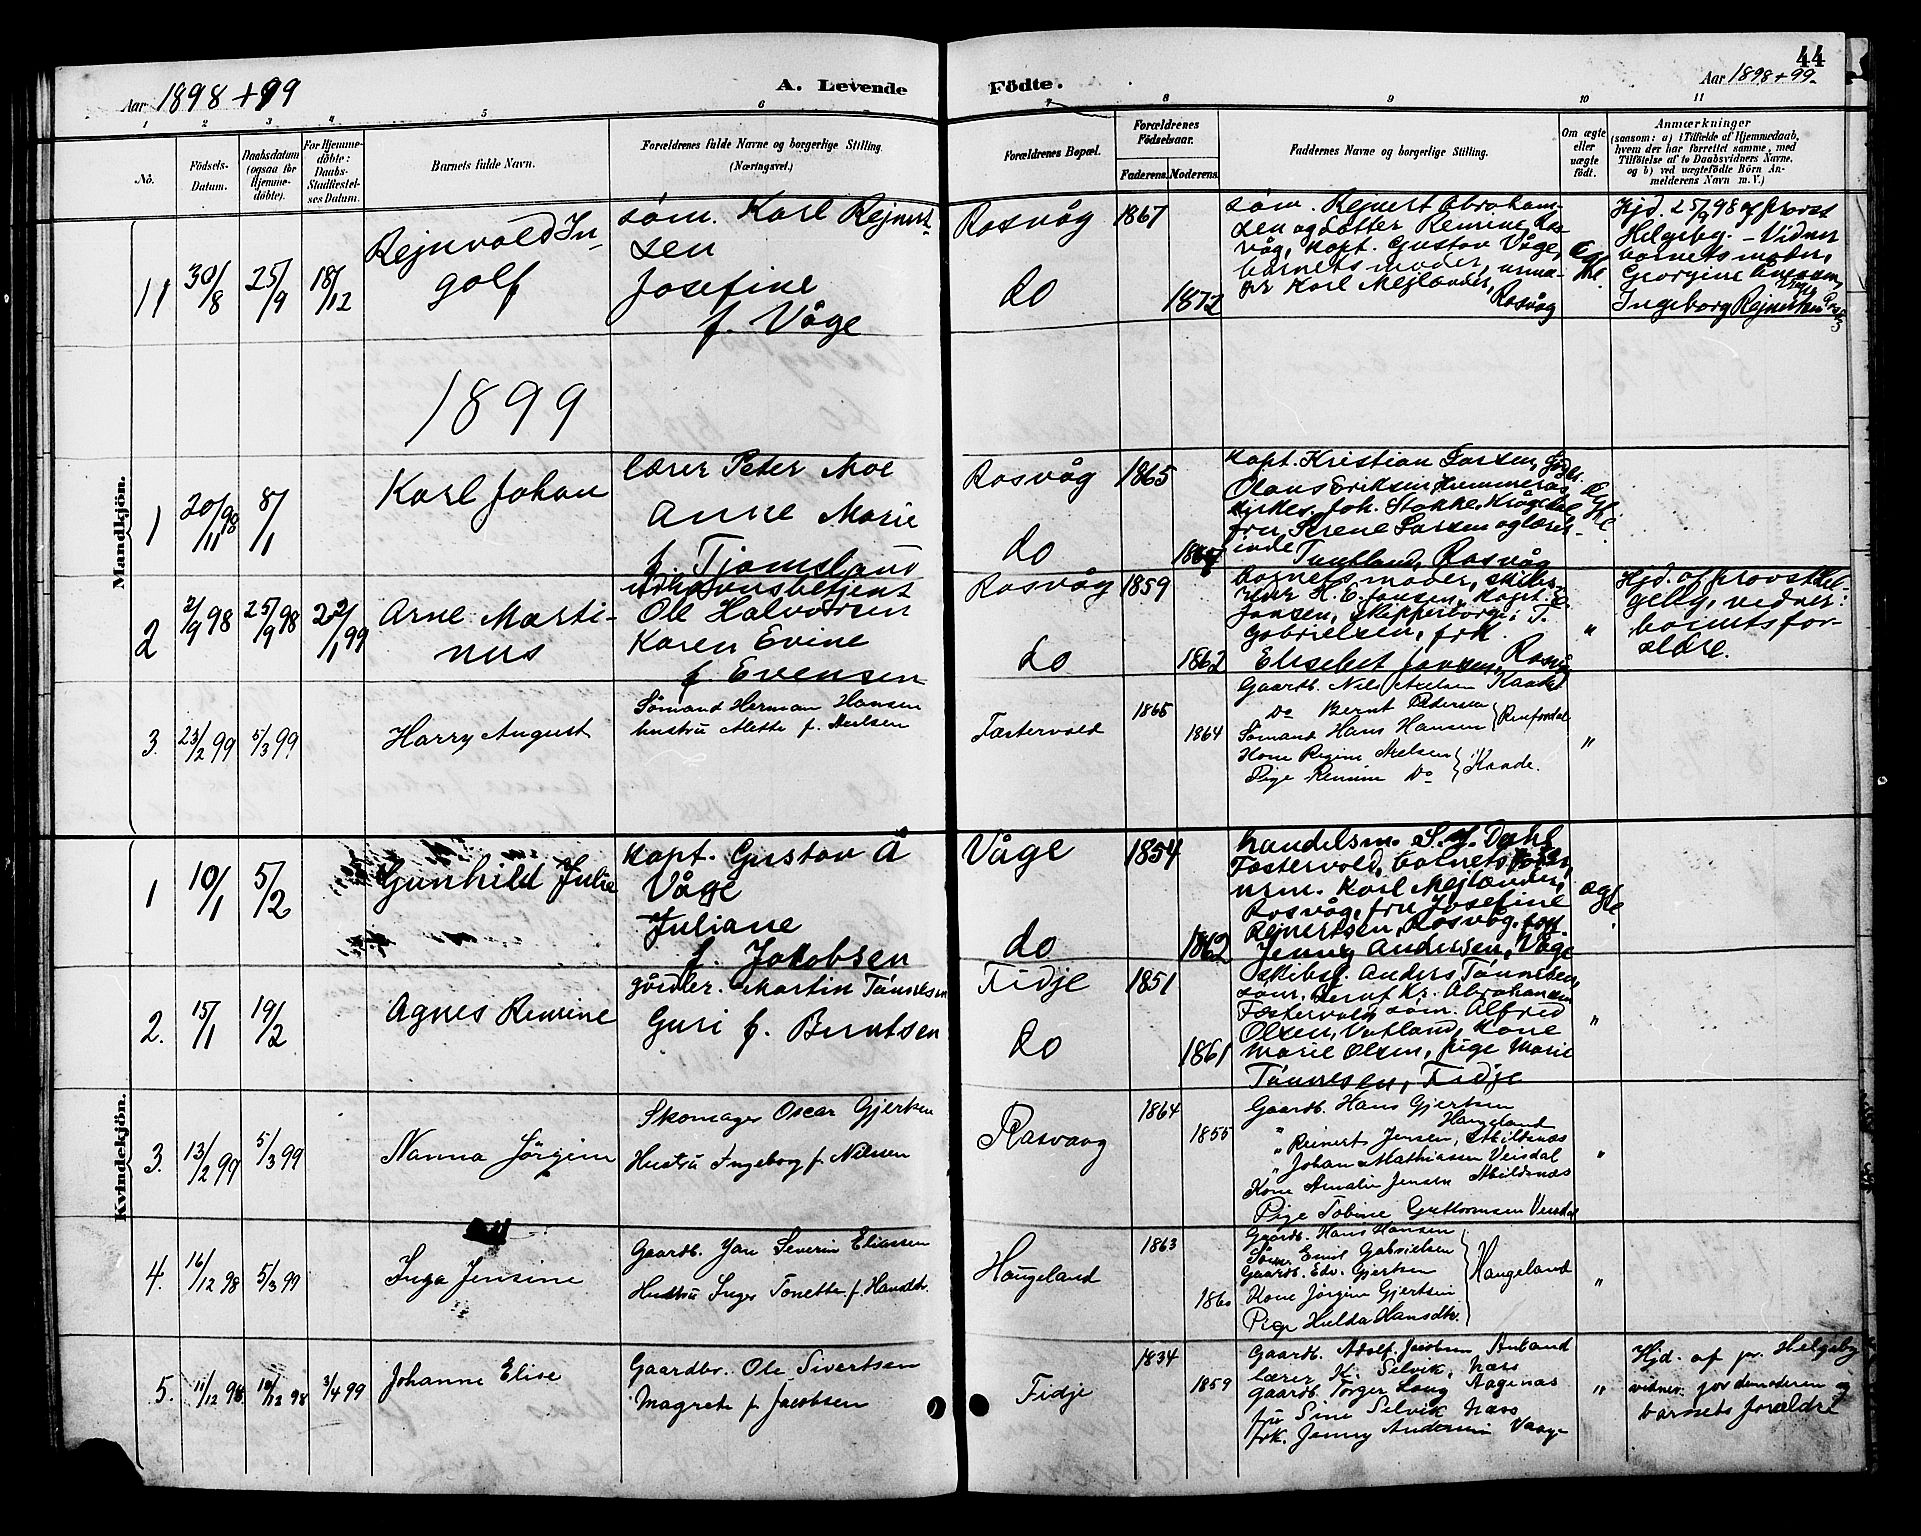 44
Aar 1898+99
A. Levende Födte.
Aar 1898+99.
1 2 3 4 5 6 7 8 9 10 11
No.
Födsels-
Datum.
Daabsdatum
(ogsaa for
Hjemme-
döbte).
For Hjemme-
döbte:
Daabs-
Stadfæstel-
ses Datum.
Barnets fulde Navn.
Forældrenes fulde Navne og borgerlige Stilling
(Næringsvei.)
Forældrenes Bopæl.
Forældrenes
Födselsaar.
Faderens. Moderens.
Faddernes Navne og borgerlige Stilling.
Om ægte
eller
uægte
födt.
Anmærkninger
(saasom: a) i Tilfælde af Hjemmedaab,
hvem der har forrettet samme, med
Tilföielse af to Daabsvidners Navne,
og b) ved uægtefödte Börn An-
melderens Navn m. V.)
Mandkjön.
11 30/8 25/9 18/12
Rejnvold In-
golf
søm. Karl Rejnert-
sen
Josefine
f. Våge
Rosvåg 1867
do 1872
søm. Rejnert Abraham-
sen og datter Remine, Ros-
våg, kapt. Gustav Våge,
barnets moder, urma-
ker Karl Mejlænder,
Rosvåg
Ægte.
Hjd. 25/9 98 af provst
Helgeby. - Vidner
barnets moder,
Georgine
Ingeborg Rejnertsen
1899
1 20/11 98 8/1
Karl Johan
lærer Peter Moe
Anne Marie
f. Tjomsland
Rosvåg 1865
do
kapt. Kristian Larsen,
Olaus Eriksen
kirkes. Joh. Stokke,
fru Serene Larsen og lærer-
inde Tuntland, Rosvåg
Ægte.
2 2/9 98 25/9 98 22/1 99
Arne Marti-
nus
Ole Halvorsen
Karen Evine
f. Evensen
Rosvåg 1859
do 1862
barnets moder, skibs-
reder H. E. Jansen, kapt. E.
Jansen, skipperborg. T.
Gabrielsen, frk.
Elisebet Jansen, Rosvåg
"
Hjd. af provst Hel-
geby, vidner:
barnets for-
ældre.
3. 23/2 99 5/3 99
Harry August
Sömand Herman Hansen
hustru Alette f. Nielsen
Fæstervold
1865
1864
Gaardb. Nils Axelsen Kaade
Do Bernt Pedersen
Sömand Hans Hansen
Kone Regine Axelsen
Pige Remine Do
Kaade.
"
Kvindekjön.
1 10/1 5/2
Gunhild Julie
kapt. Gustav A
Våge
Juliane
f. Jakobsen
Våge 1854
do 1862
handelsm. S. J. Dahl
Fæstervold, barnets fader,
urm. Karl Mejlænder,
Rosvåg, fru Josefine
Rejnertsen, Rosvåg, frk.
Jenny Andersen, Våge
ægte.
2. 15/1 19/2
Agnes Remine
gårdbr. Martin Tönnesen
Guri f. Berntsen
Fidje 1851
do 1861
skibsf. Anders Tönnesen,
søm. Bernt Kr. Abrahamsen
Fæstervold, søm. Alfred
Olsen, Vatland, kone
Marie Olsen, pige Marie
Tönnesen, Fidje
"
3. 13/2 99 5/3 99
Nanna Jörgine
Skomager Oscar Gjertsen
Hustru Ingeborg f. Nilsen
Rasvaag
1864
1855
Gaardb. Hans Gjertsen
Haugeland
" Reinert Jensen, Abildsnæs
" Johan Mathiasen Veisdal
Kone Amalie Jensen Abildsnæs
Pige Tobine Guttormsen Veisdal
"
4. 16/12 98 5/3 99
Inga Jensine
Gaardb. Jan Severin Eliassen
Hustru Inger Tonette f. Hansdtr.
Haugeland
1863
1860
Gaardb. Hans Hansen
Söm. Emil Gabrielsen
Gaardb. Edv. Gjertsen
Kone Jörgine Gjertsen
Pige Hulda Hansdtr.
Haugeland
"
5. 11/12 98 18/12 98 3/4 99
Johanne Elise
Gaardbr. Ole Sivertsen
Magrete f. Jacobsen
Fidje
1834
1859
Gaardb. Adolf Jacobsen, Auland
lærer K. Selvik, Næss
gaardb. Torger Long Aagenæs
fru Sine Selvik Næss
frk. Jenny Andersen Vaage
"
Hjd. af pr. Helgeby
vidner: jordemoderen og
barnets forældre